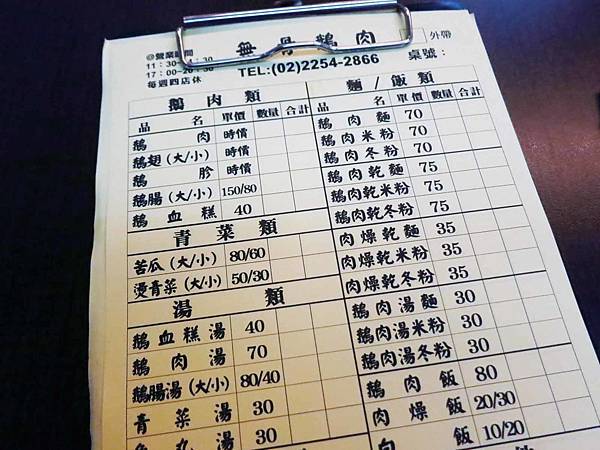 無骨鵝肉
外帶
@營業時間
11:30-
17:00-20:30
每週四店休
TEL:(02)2254-2866
桌號:
鵝肉類
品名 單價 數量 合計
鵝肉 時價
鵝翅(大/小) 時價
鵝胗 時價
鵝腸(大/小) 150/80
鵝血糕 40
青菜類
苦瓜(大/小) 80/60
燙青菜(大/小) 50/30
湯類
鵝血糕湯 40
鵝肉湯 70
鵝腸湯(大/小) 80/40
青菜湯 30
魚丸湯 30
麵/飯類
品名 單價 數量 合計
鵝肉麵 70
鵝肉米粉 70
鵝肉冬粉 70
鵝肉乾麵 75
鵝肉乾米粉 75
鵝肉乾冬粉 75
肉燥乾麵 35
肉燥乾米粉 35
肉燥乾冬粉 35
鵝肉湯麵 30
鵝肉湯米粉 30
鵝肉湯冬粉 30
鵝肉飯 80
肉燥飯 20/30
白飯 10/20